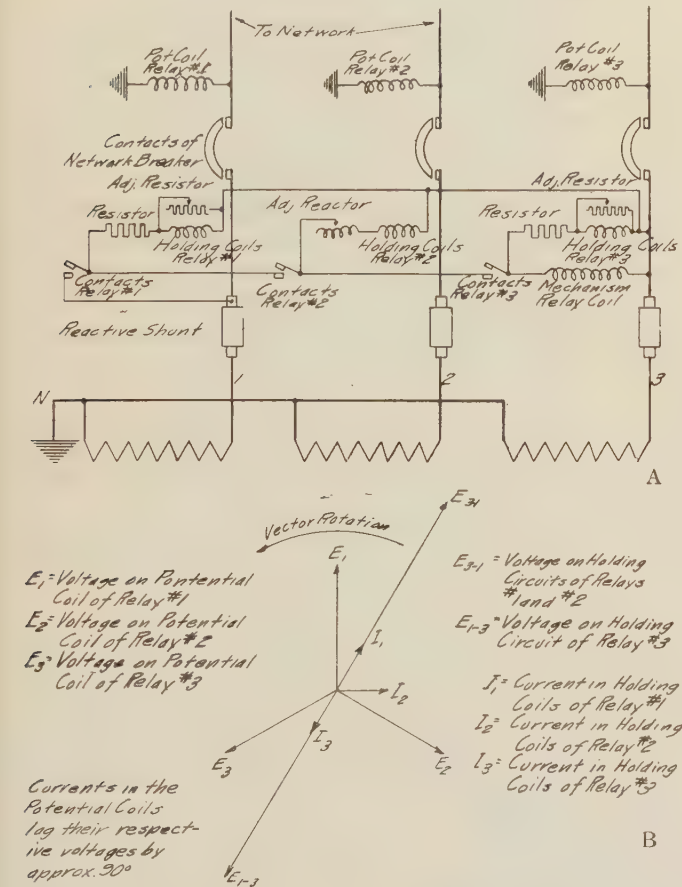 To Network
Pot Coil
Relay #1
Pot Coil
Relay #2
Pot Coil
Relay #3
Contacts of
Network Breaker
Adj. Resistor
Adj. Resistor
Resistor
Adj. Reactor
Resistor
Holding Coils
Relay #1
Holding Coils
Relay #2
Holding Coils
Relay #3
Contacts
Relay #1
Contacts
Relay #2
Contacts
Relay #3
Mechanism
Relay Coil
Reactive Shunt
1
2
3
N
A
Vector Rotation
E3-1
E1
I1
I2
I3
E3
E2
E1-3
E1= Voltage on Pontential
Coil of Relay #1
E2= Voltage on Potential
Coil of Relay #2
E3= Voltage on Potential
Coil of Relay #3
Currents in the
Potential Coils
lag their respect-
ive voltages by
approx. 90°
E3-1= Voltage on Holding
Circuits of Relays
#1 and #2
E1-3= Voltage on Holding
Circuit of Relay #3
I1= Current in Holding
Coils of Relay #1
I2= Current in Holding
Coils of Relay #2
I3= Current in Holding
Coils of Relay #3
B